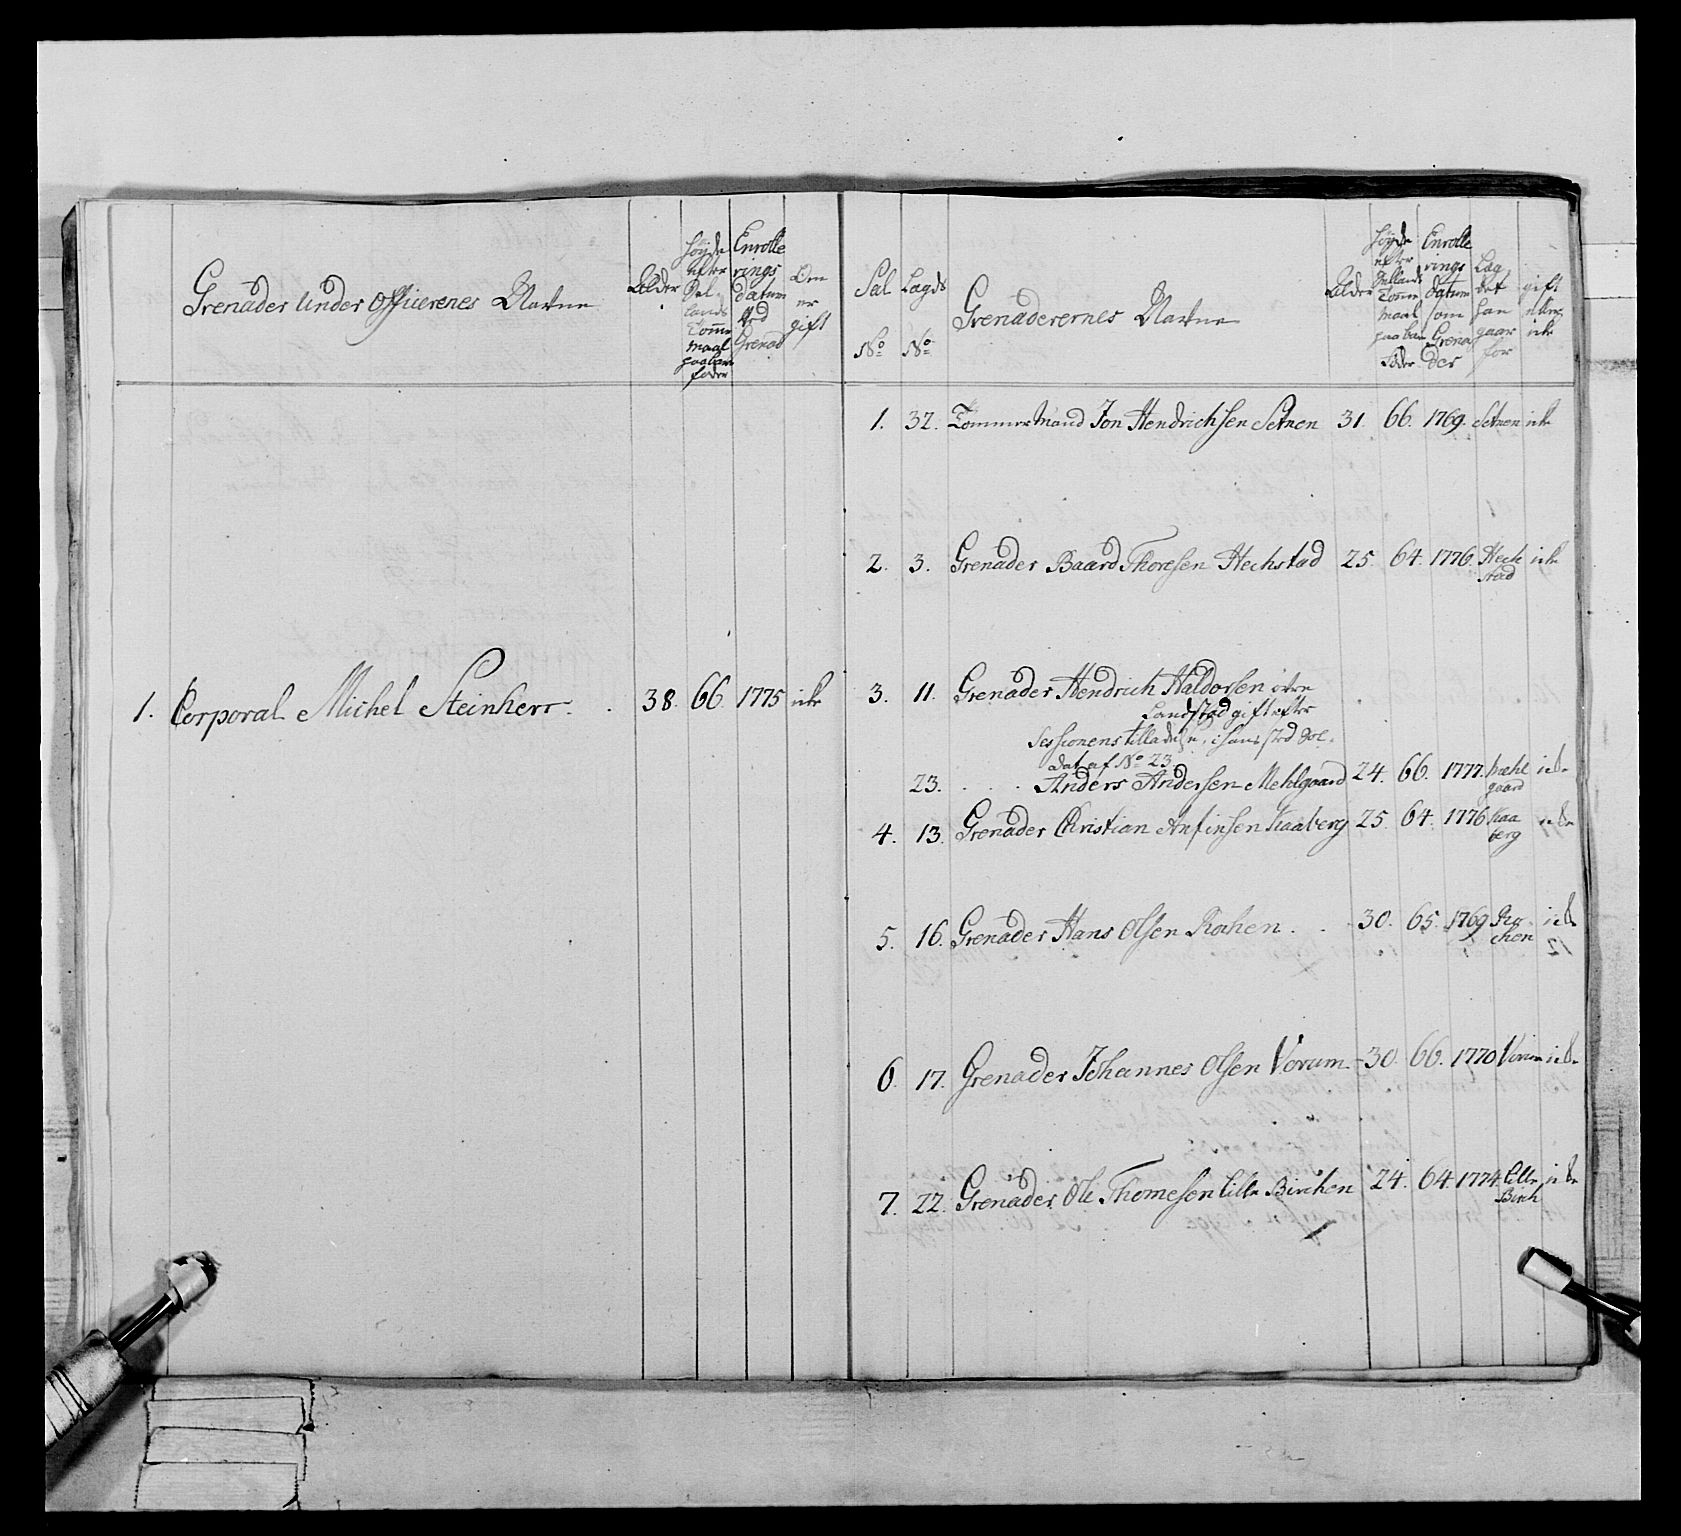 Grenader Under Officerenes Navne
Alder
Høyde efter Sel. lands Tomme maal paa bare føder
Enrolle rings datum ved Grenad
Om er gift
1. Corporal Michel Steinherr. 38. 66. 1775 icke
Sal No
Lagds No
Grenaderernes Navne
Alder
Høyde efter Sellands Tomme maal paa bare Føder
Enrolle rings datum som Grena der
Læg det han gaar for
gift eller icke
1. 32. Tømmermand Jon Hendrichsen Setnen 31. 66. 1769. Setnen icke
2. 3. Grenader Baard Thoresen Hechstad 25. 64. 1776. Hech icke
stad
3. 11. Grenader Hendrich Haldorsen øvre
Landstad gift efter
Sessionens tilladelse, i hans sted Sol-
dat af No 23
23. Anders Andersen Mehlgaard 24. 66. 1777. Mehl icke
gaard
4. 13. Grenader Christian Anfinsen Kaaberg 25. 64. 1776 Kaa icke
berg
5. 16. Grenader Hans Olsen Rochen. 30. 65. 1769 Ro icke
chen
6. 17. Grenader Johannes Olsen Vorum 30. 66. 1770 Vorum icke
7. 22. Grenader Ole Thomesen Lille Birchen 24. 64. 1774. Lille icke
Birch